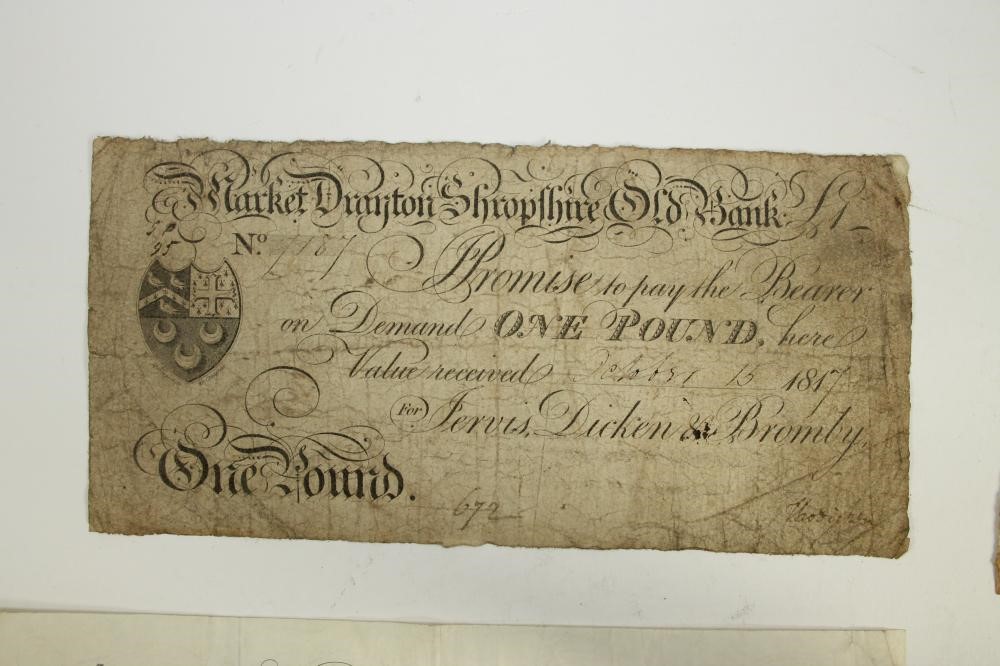 Market Drayton Shropshire Old Bank. £1
No. 7187
I Promise to pay the Bearer
on Demand ONE POUND, here
Value received October 15 1817
For Jervis, Dicken & Bromby,
One Pound.
672